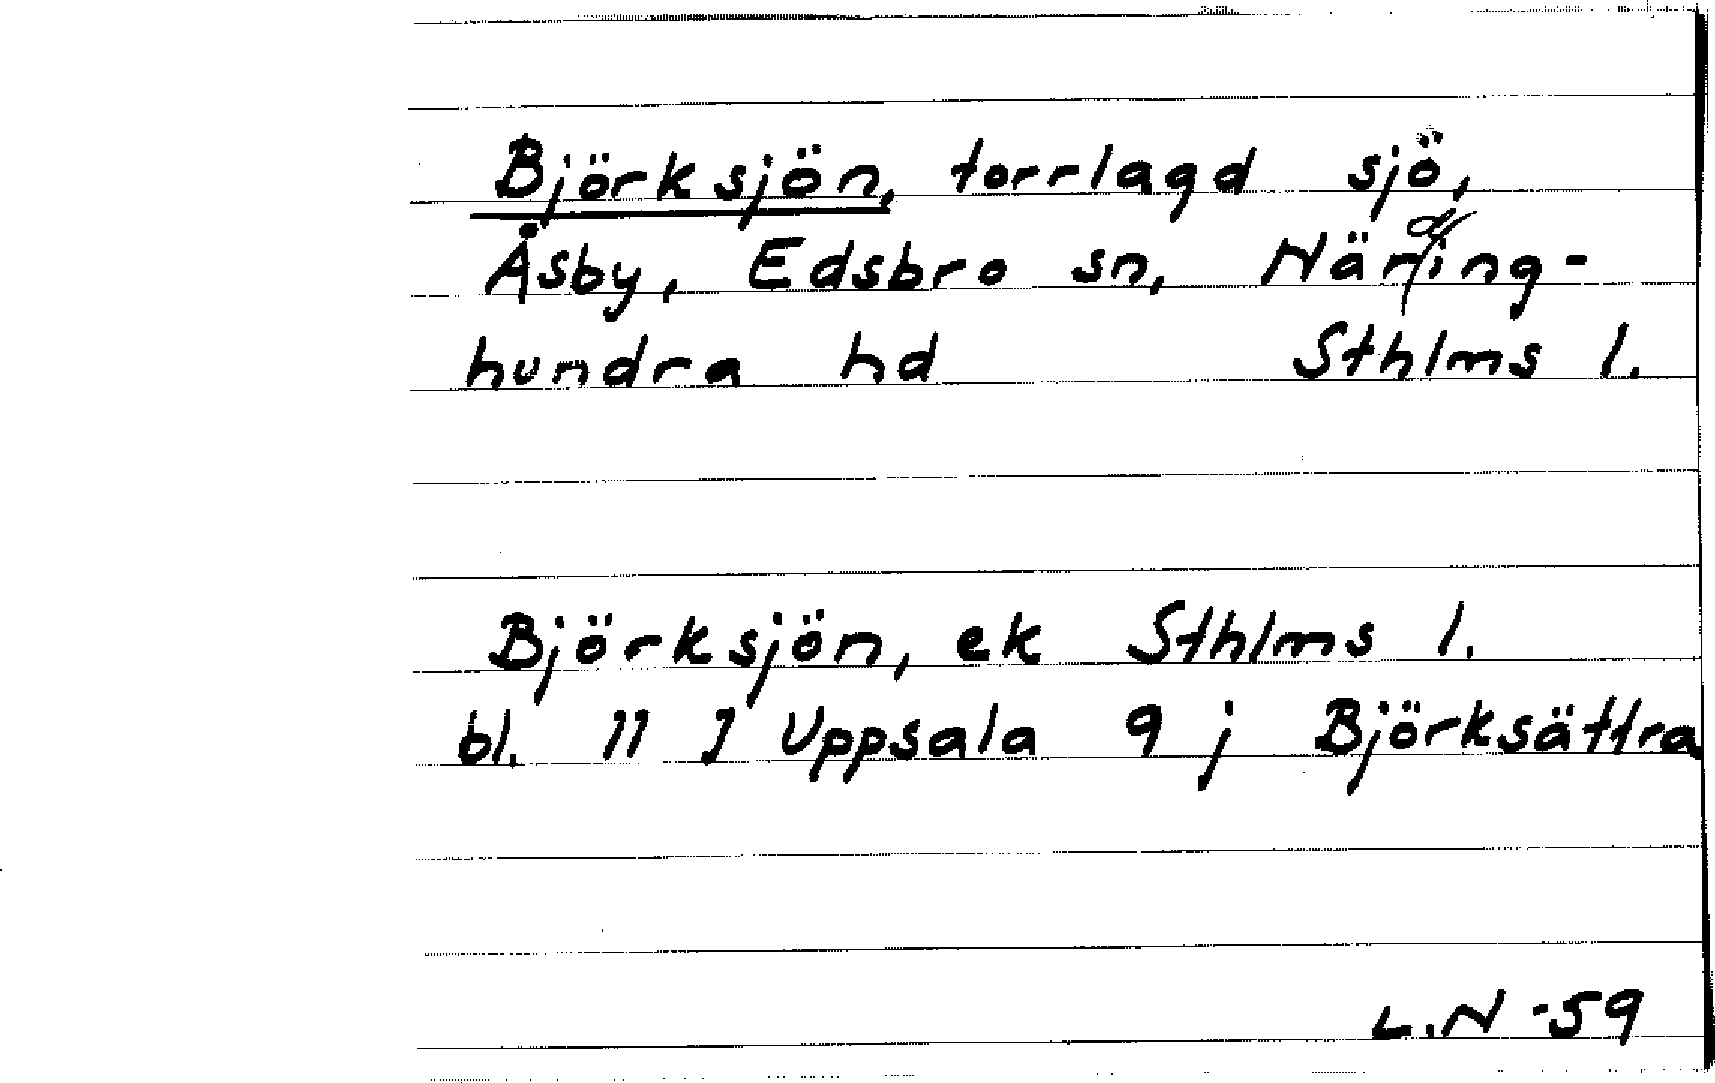 Björksjön, torrlagd sjö,
Åsby, Edsbro sn, Närding-
hundra hd Sthlms l.
Björksjön, ek Sthlms l.
bl. 11 J Uppsala 9 j Björksättra
L.N -59